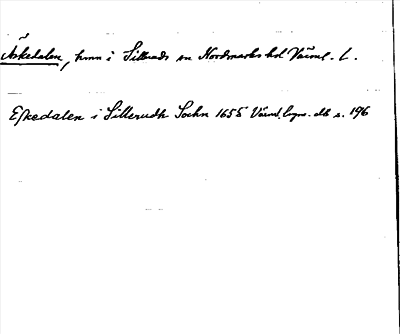 Äskedalen, hmn i Sillerud sn Nordmarks hd Värml. l.
Eskedalen i Sillerudh Sochn 1655 Värml. db s. 196